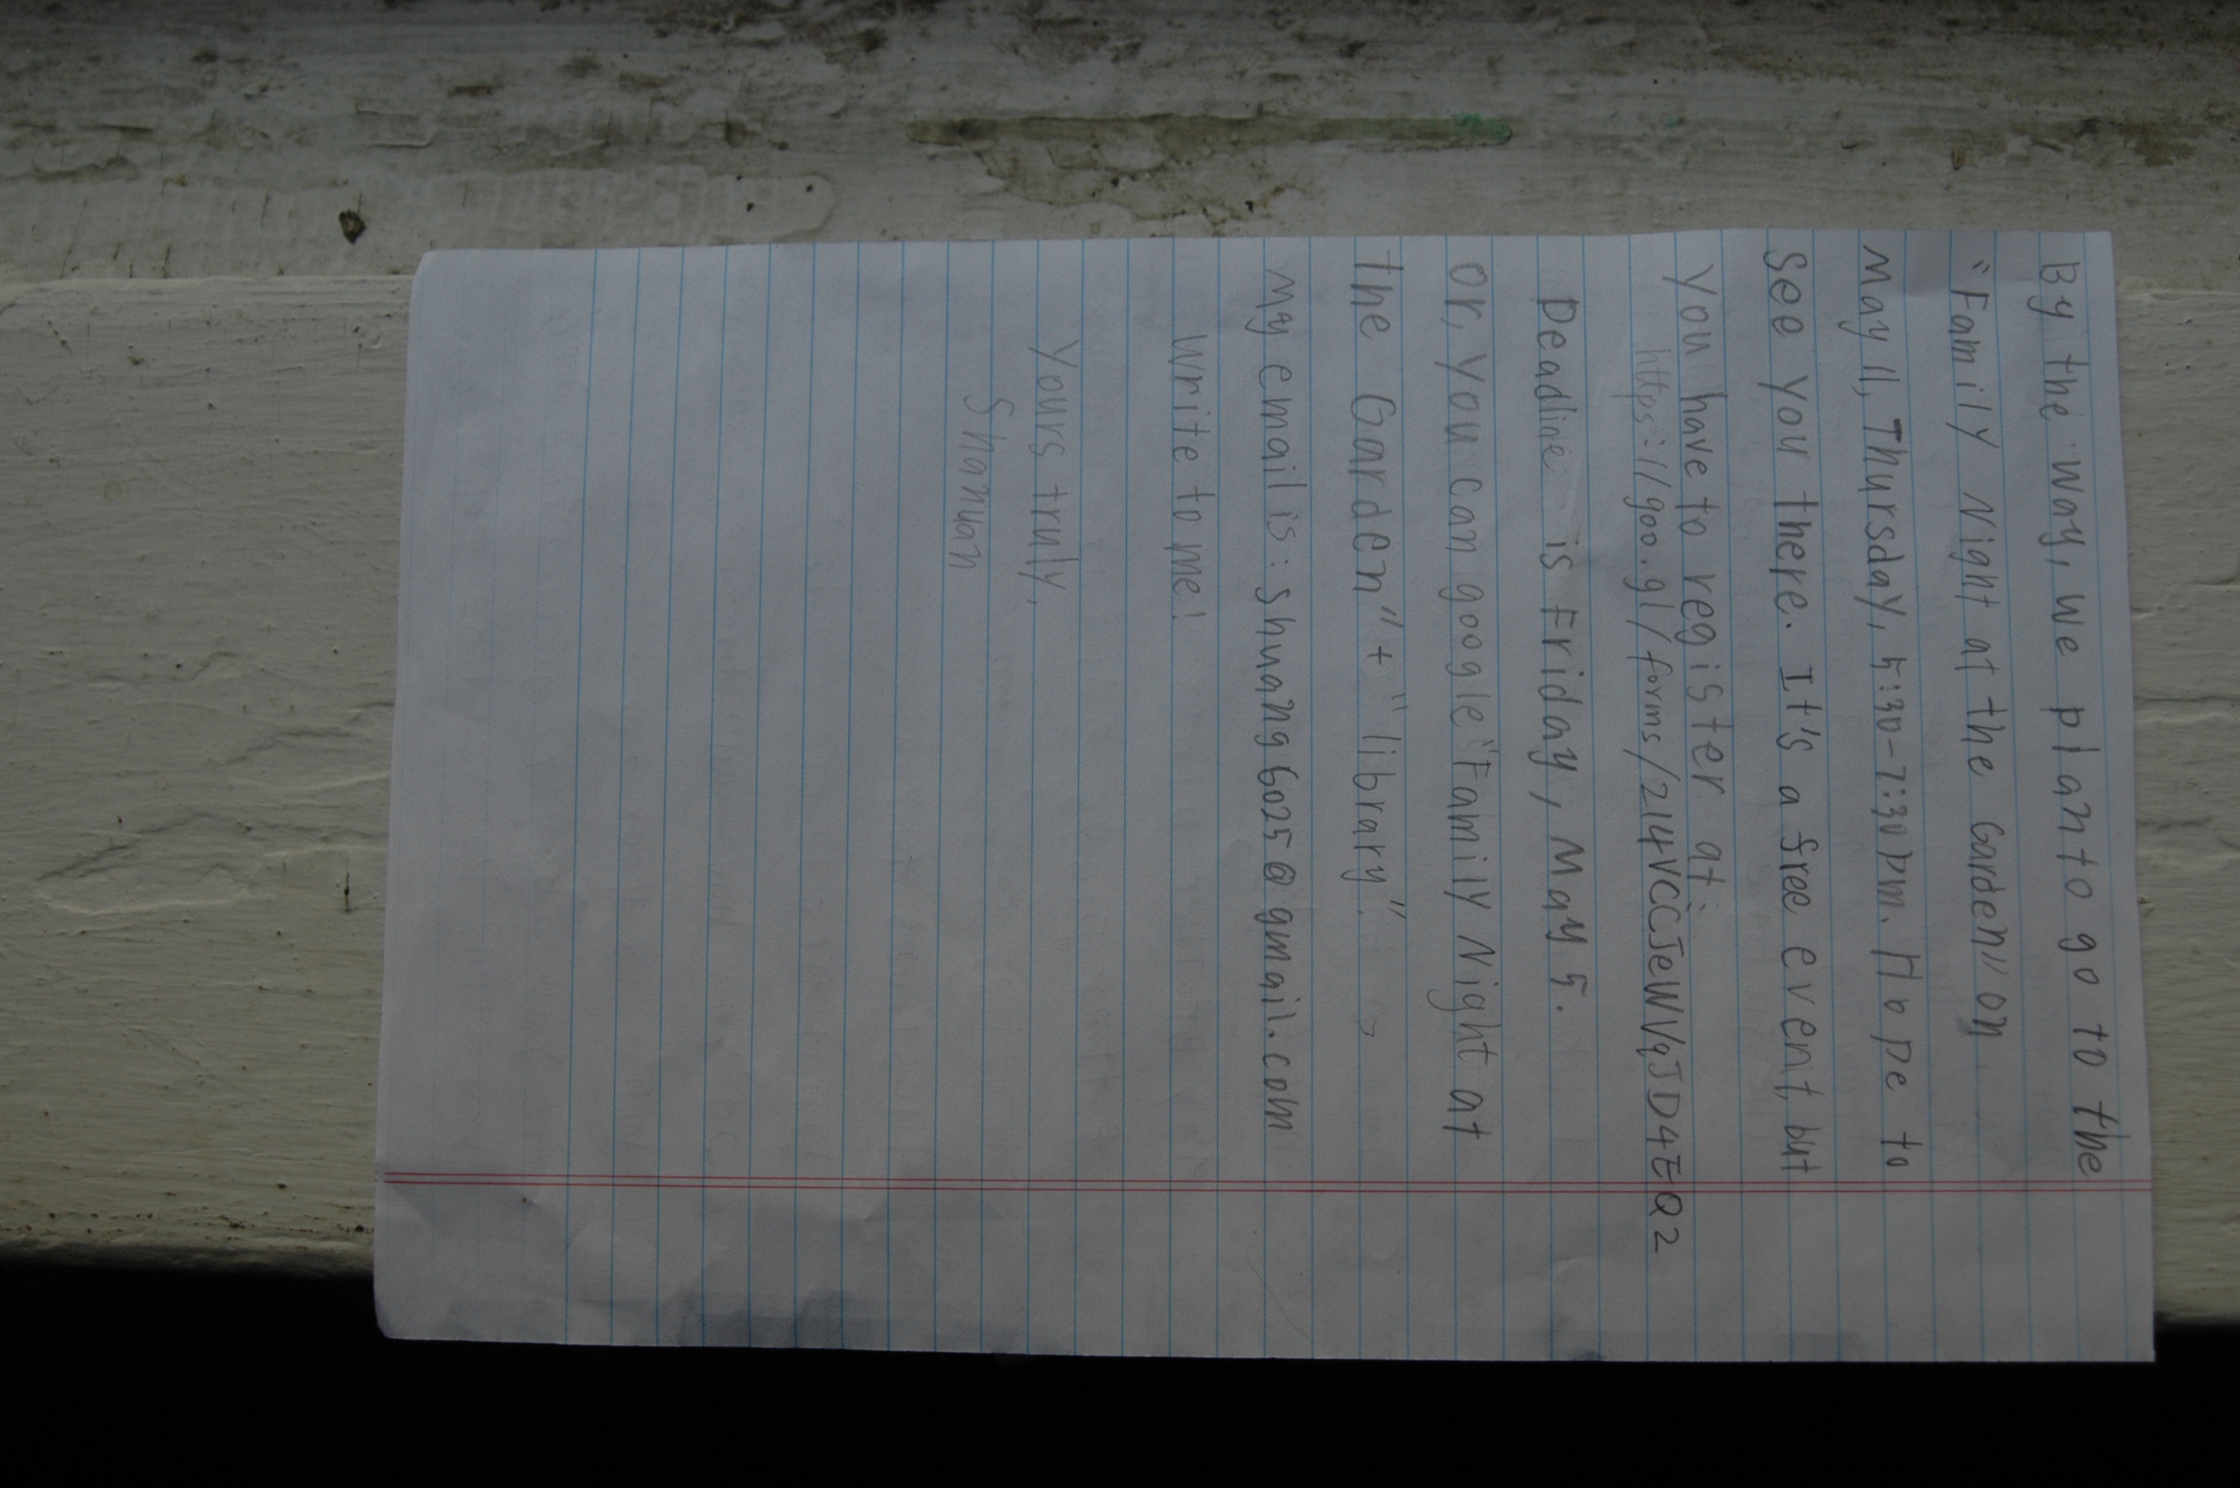 By the way, we plan to go to the
"Family Night at the Garden" on
May 11, Thursday, 5:30-7:30pm. Hope to
See you there. It's a free event, but
You have to register at:
https://goo.gl/forms/214VCCJeWVqJD4EQ2
Deadline is Friday, May 5.
Or, you can google "Family Night at
the Garden" + "library".
My email is: shuang6025@gmail.com
Write to me!
Yours truly,
Shanuan